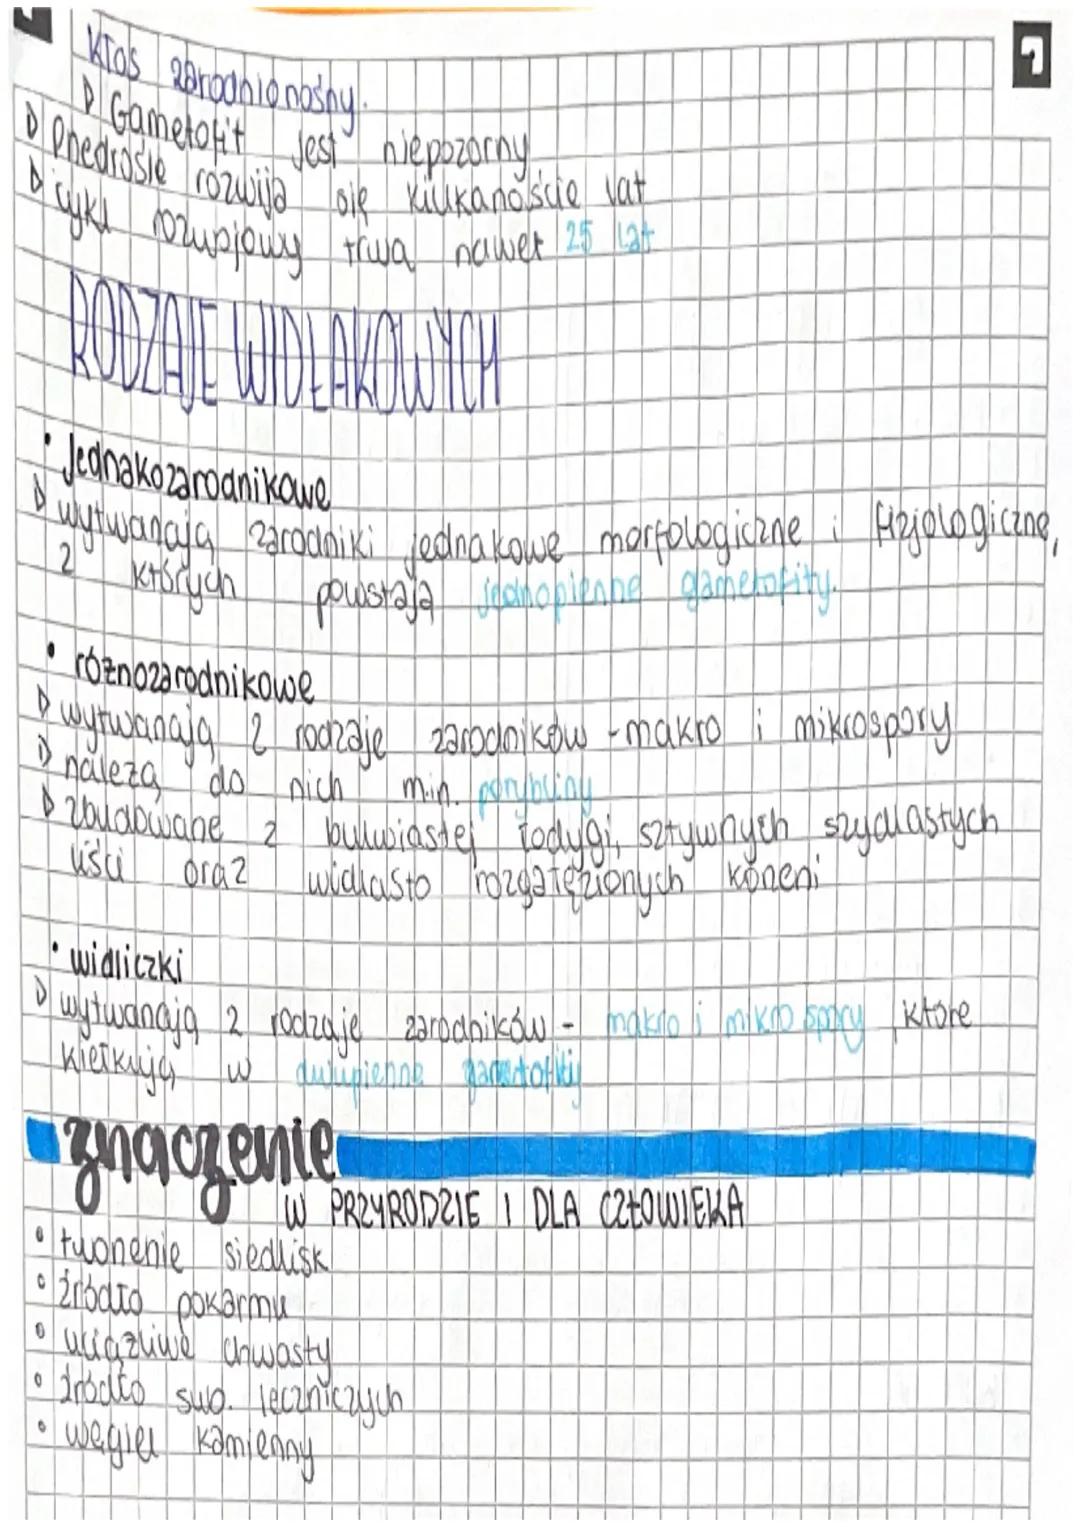 kłos zarodnionośny.
Gametofit jest niepozorny
Przedrośle rozwija się kilkanoście lat
cykl rozwojowy trwa nawet 25 lat
RODZAJE WIDŁAKOWYCH
• Jednakozarodnikowe
wytwarzają zarodniki jednakowe morfologiczne i fizjologiczne,
z których powstają jednopienne gametofity.
• różnozarodnikowe
wytwarzają 2 rodzaje zarodników - makro i mikrospory
należą do nich m.in. porybliny
zbudowane z bulwiastej łodygi, sztywnych szydlastych
liści oraz widlasto rozgałęzionych korzeni
• widliczki
wytwarzają 2 rodzaje zarodników - makro i mikrospory, które
kiełkują w dwupienne gametofity
znaczenie
W PRZYRODZIE I DLA CZŁOWIEKA
• tworzenie siedlisk
• źródło pokarmu
• uciążliwe chwasty
• źródło sub. leczniczych
• węgiel kamienny